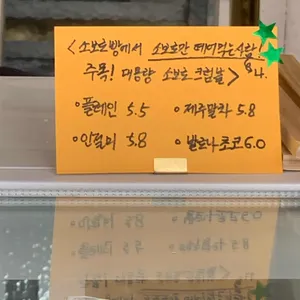 <소보로빵에서 소보로만 떼어먹는 사람!
주목! 대용량 소보로 크럼블>
• 플레인 5.5 • 제주말차 5.8
• 인절미 5.8 • 발로나 초코 6.0